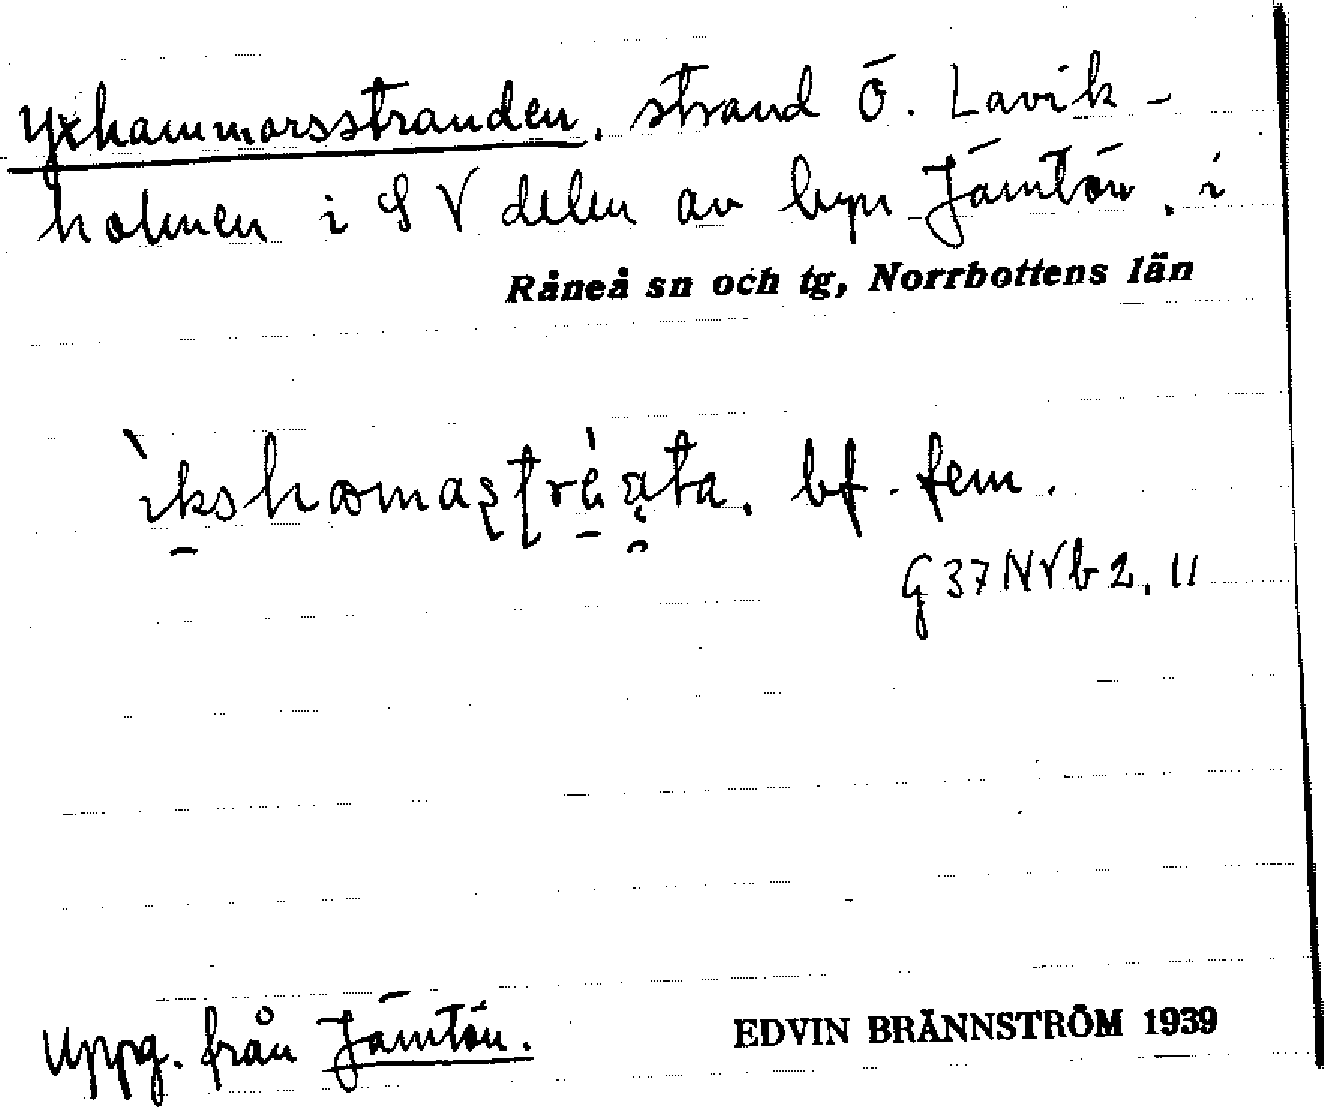 Yxhammarsstranden, strand Ö. Lavik-
holmen i SV delen av byn Jämtön, i
Råneå sn och tg, Norrbottens län
bf. fem.
G 37 NVb 2, 11
Uppg. från Jämtön.
EDVIN BRÄNNSTRÖM 1939